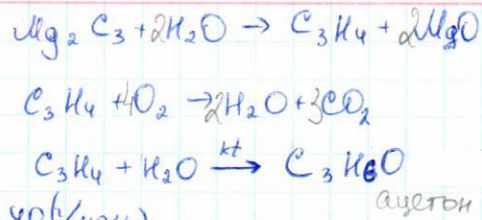 Mg₂ C₃ + 2H₂O → C₃H₄ + 2MgO
C₃H₄ + 4O₂ → 2H₂O + 3CO₂
C₃H₄ + H₂O kt → C₃H6O
ацетон